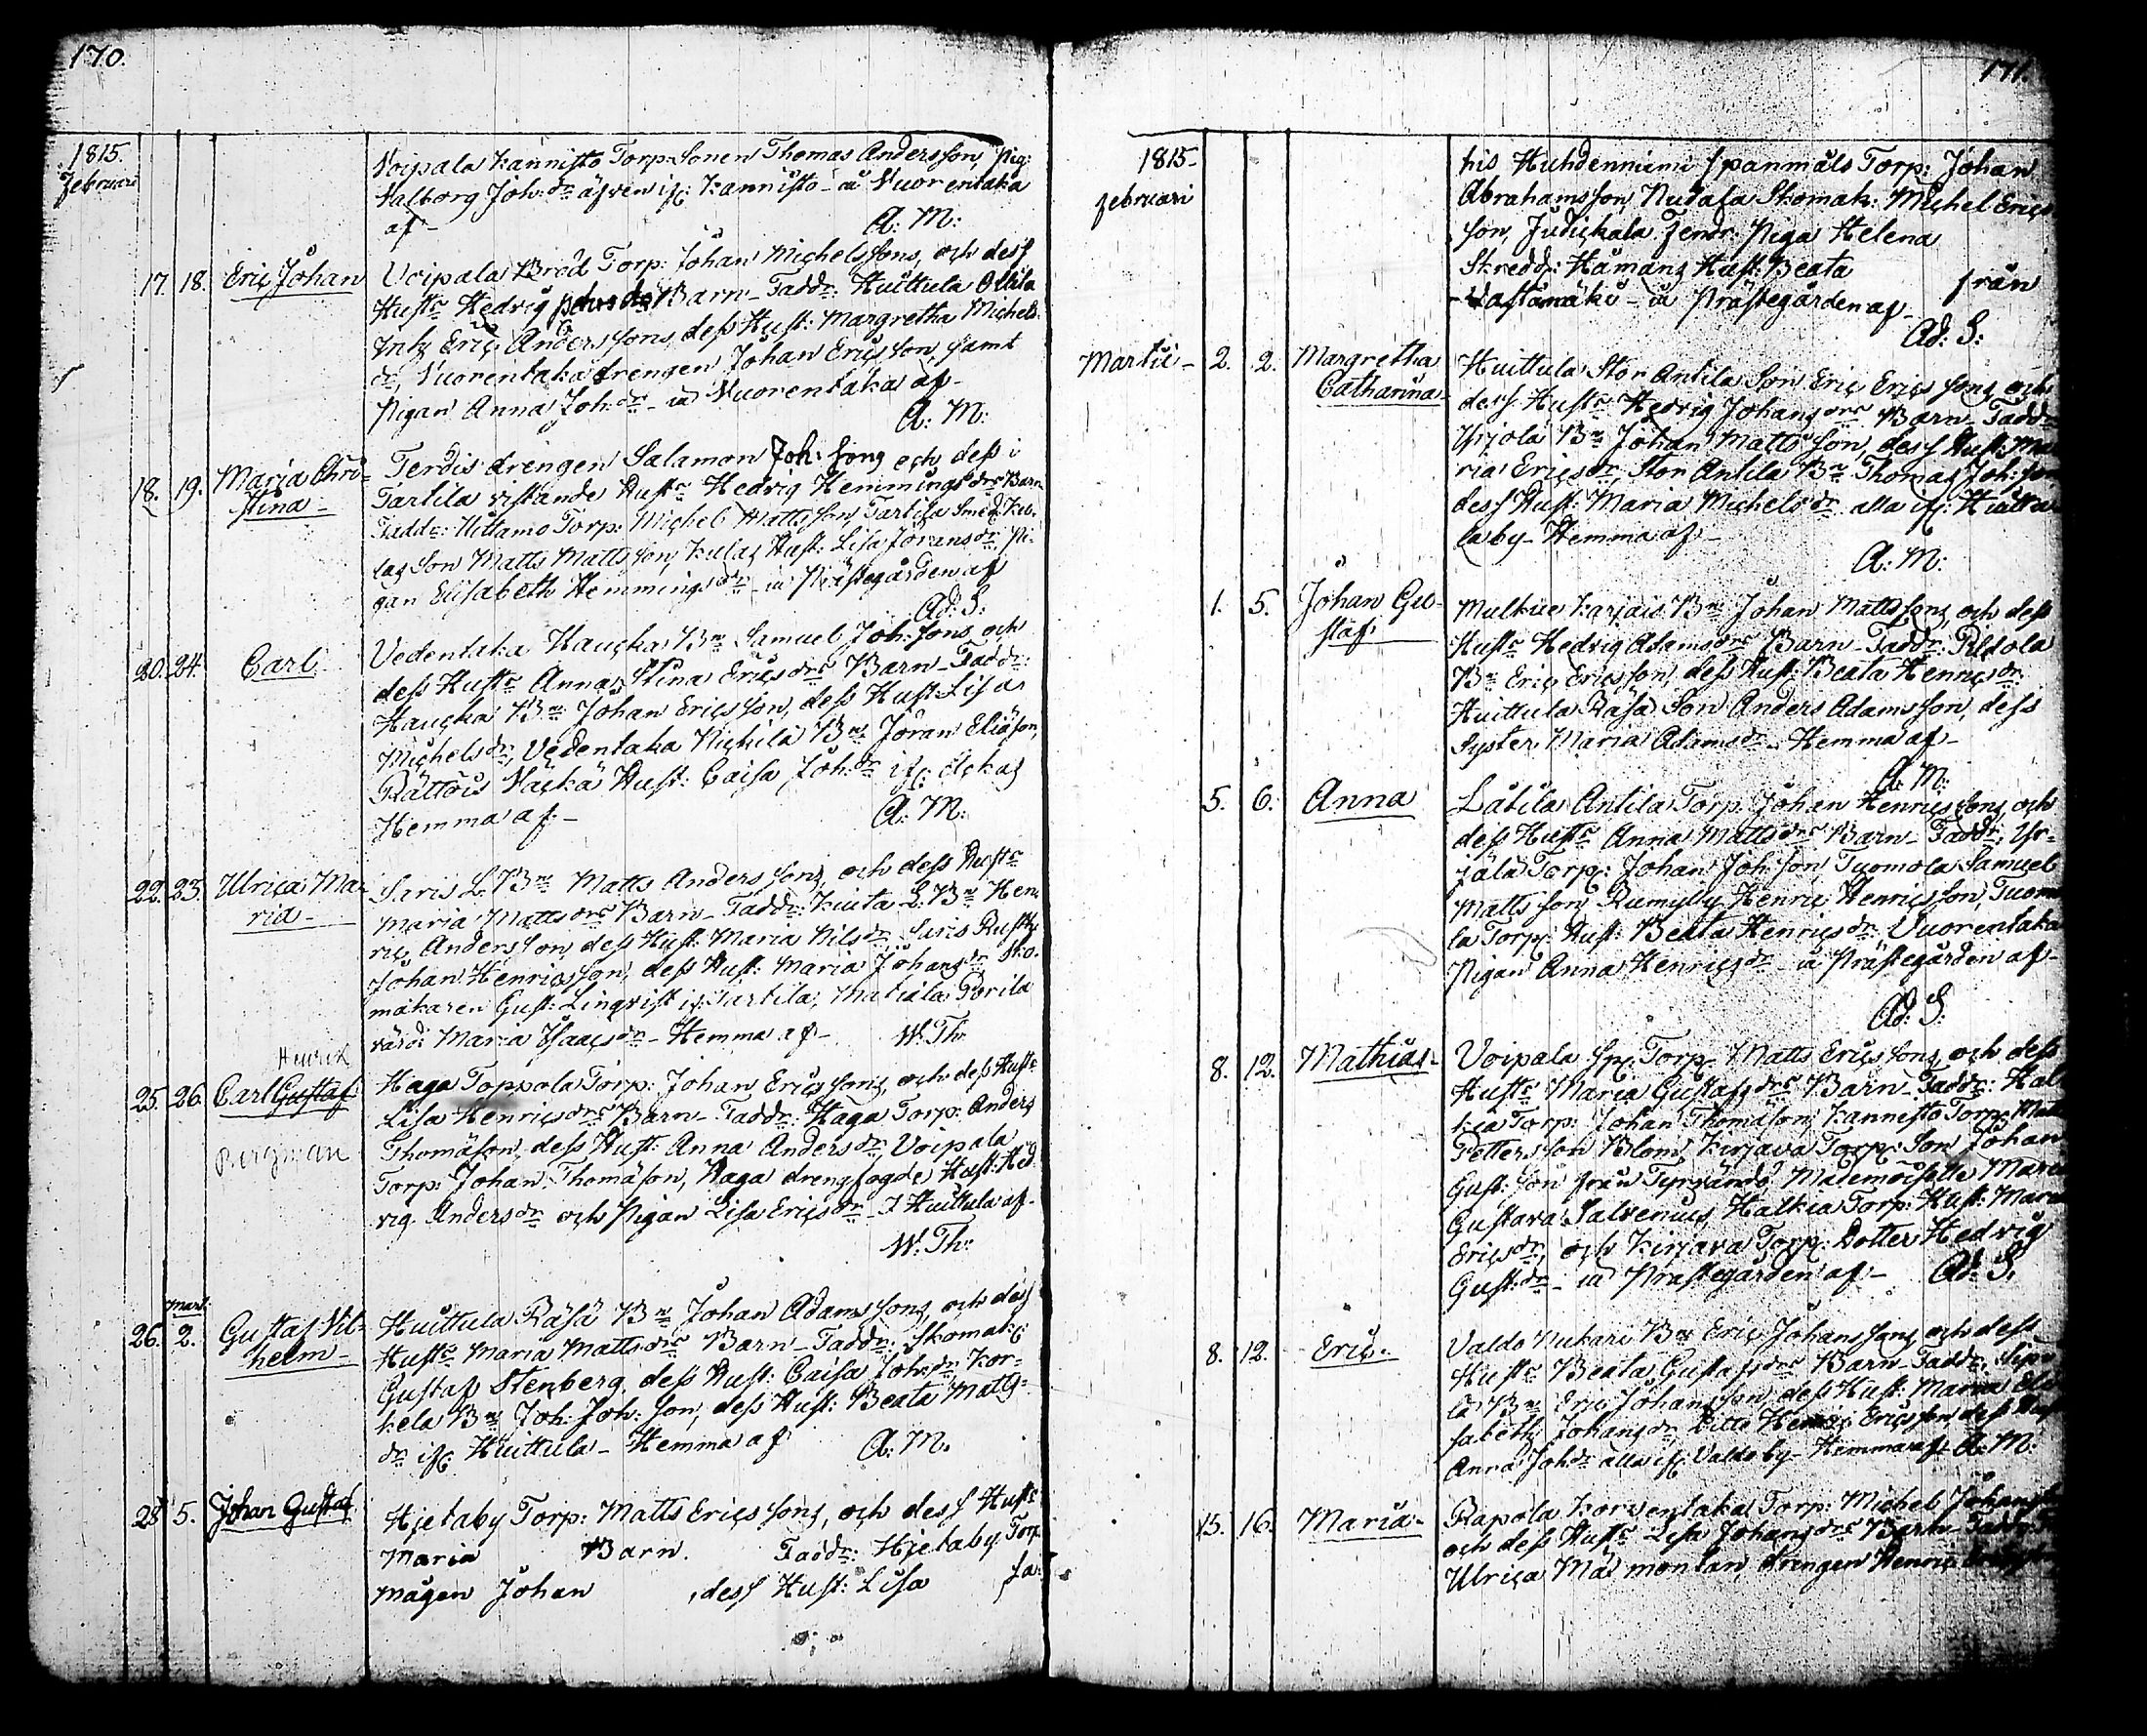 170.
1815.
Februari
Voipala Kannisto Torp: Sonen Thomas Andersson, Pig:
Valborg Joh: dr äfven if: Kannisto - in Nuorentaka
af - A: M:
17. 18. Eric Johan Voipala Bröd Torp: Johan Michelssons, och dess
Hustr Hedvig Barn - Faddr: Huittula Ottila
Inhs Eric Anderssons, dess Hust: Margretha Michels
dr, Vuorentaka drengen Johan Ericsson, samt
Pigan Anna Joh: dr - in Vuorentaka af -
A: M:
18. 19. Maria Chri-
stina - Ferdis drengen Salamon Joh: Sons och dess i
Tartila vistande Hustr Hedvig Hemmings drs Barn
Faddr: Uittamo Torp: Michel Mattsson, Tartila Smed Ku-
las Son Matts Mattsson, Kulas Hust: Lisa Johans dr Pi-
gan Elisabeth Hemmings dr - in Prästegården af
Ad: S:
20. 24. Carl Vedentaka Haucka Bn Samuel Joh: Sons och
dess Hustr Anna Stina Erics drs Barn - Faddr:
Haucka Bn Johan Ericsson, dess Hust: Lisa
Michels dr, Vedentaka Nickilä Bn Jöran Eliäson,
Rättöis Väckä Hust: Caisa Joh: dr
Hemma af. - A: M:
22. 23. Ulrica Ma-
ria - Saris L. Bn Matts Anderssons, och dess Hustr
Maria Matts drs Barn - Faddr: Kiuta L. Bn Hen-
ric Andersson, dess Hust: Maria Nils dr Saris Rusth:
Johan Henricsson, dess Hust: Maria Johans dr Sko-
makaren Gust: Linqvist if: Tartila, Matiala Porila
värd: Maria Isaacs dr - Hemma af - W: Th:
25. 26. Henrik
Carl Gustaf
Bergman Haga Toppola Torp: Johan Ericssons, och dess Hustr
Lisa Henrics drs Barn - Faddr: Haga Torp: Anders
Thomäson, dess Hust: Anna Anders dr, Voipala
Torp: Johan Thomäson, Haga drengfogde Hust: Hed
vig Anders dr och Pigan Lisa Erics dr - I Huittula af -
W: Th:
26. Mart. 2. Gustaf Vil-
helm - Huittula Räsä Bn Johan Adamssons, och dess
Hustr Maria Matts drs Barn - Faddr: Skomak:
Gustaf Stenberg, dess Hust: Caisa Joh: dr Kor-
kela Bn Joh: Joh: Son, dess Hust: Beata Matts-
dr if: Huittula - Hemma af A: M.
28 5. Johan Gustaf Hjetaby Torp: Matts Ericssons, och dess Hustr
Maria Barn. Faddr: Hjetaby Torp.
Mågen Johan , dess Hust: Lisa Ja-
171.
1815.
februari
his Huhdenniemi spanmåls Torp: Johan
Abrahamsson, Nudafa Skomak: Michel Erics
son, Judickala Fendr: Piga Helena
Skredd: Hamans Hust: Beata från
Vastamäki - in Prästegården af -
Ad: S:
Martii - 2. 2. Margretha
Catharina - Huittula Stor Antila Son Eric Ericssons, och
dess Hustr Hedvig Johans drs Barn - Faddr:
Yrjola Bn Johan Mattsson, dess Hust: Ma
ria Erics dr, Stor Antila Bn Thomas Joh: Son
dess Hust: Maria Michels dr alla if: Huittu
la by - Hemma af -
A: M:
1. 5. Johan Gu-
staf: Mulkue Karjais Bn Johan Mattssons, och dess
Hustr Hedvig Adams drs Barn - Faddr: Peltola
Bn Eric Ericsson, dess Hust: Beata Henrics dr
Huittula Räsä Son Anders Adamsson, dess
Syster Maria Adams dr - Hemma af -
A: M:
5. 6. Anna Lätila Antila Torp: Johan Henricssons, och
dess Hustr Anna Matts drs Barn - Faddr: Yr-
jälä Torp: Johan Joh: Son, Tuomola Samuel
Mattsson, Rumyby Henric Henricsson, Tuomo
la Torp: Hust: Beata Henrics dr Vuorentaka
Pigan Anna Henrics dr - in Prästegården af -
Ad: S:
8. 12. Mathias - Voipala Sp: Torp: Matts Ericssons och dess
Hustr Maria Gustafs drs Barn - Faddr: Hal
kia Torp: Johan Thomäson, Kannisto Torp: Matts
Pettersson Blom, Kirjava Torp: Son Johan
Gust: Son från Tyrvändö, Mademoiselle Maria
Gustava Salvenius, Halkia Torp: Hust: Maria
Erics dr, och Kirjava Torp: Dotter Hedvig
Gust: dr - in Prästegården af - Ad: S.
8. 12. Eric - Valdo Nukari Bn Eric Johanssons och dess
Hustr Beata Gustafs drs Barn - Faddr: Sipi
lä Bn Eric Johansson, dess Hust: Maria Eli
sabeth Johans dr, Ditto Henric Ericsson, dess Hust
Anna Joh: dr alla if: Valdo by - Hemma af - A: M:
15. 16. Maria - Rapola Korventaka Torp: Michel Johans
och dess Hustr Lisa Johans drs Barn - Faddr:
Ulrica Mas montan, drengen Henric